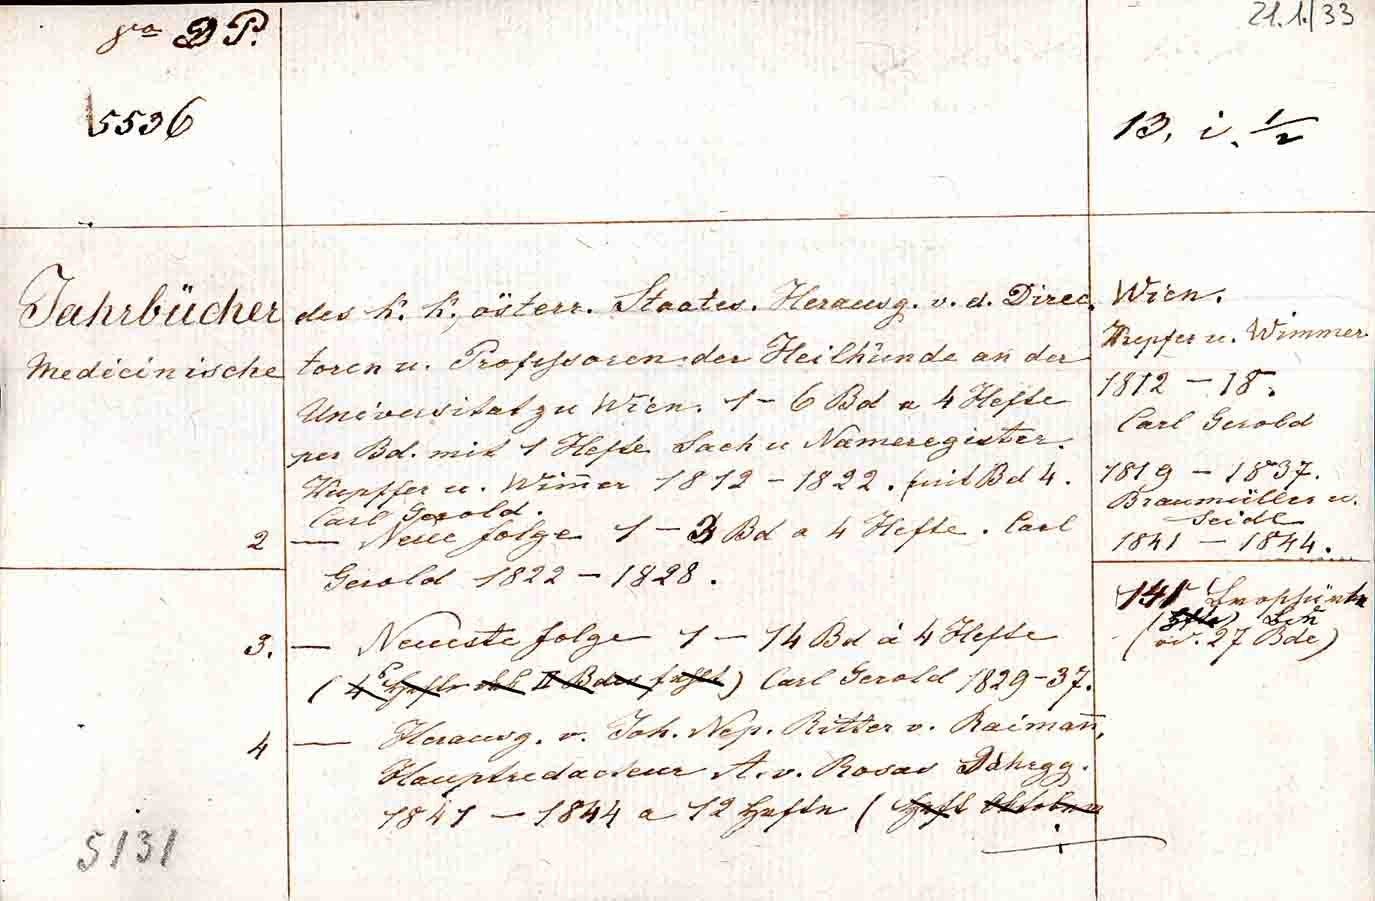 21.1./33
D P.
5536
13. i. 1/2
Jahrbücher
Medicinische
des k. k. österr. Staates. Herausg. v. d. Direc.
toren u. Professoren der Heilkunde an der
Universitat zu Wien. 1 - 6 Bd a 4 Hefte
per Bd. mit 1 Hefte Sach u Nameregister.
Kupffer u. Wim̅er 1812 - 1822. (mit Bd 4.
Carl Gerold.
2 — Neue folge 1 - 3 Bd a 4 Hefte. Carl
Gerold 1822 - 1828.
3. — Neueste folge 1 - 14 Bd à 4 Hefte
(4e Hefte des II Bdes fehlt) Carl Gerold 1829-37.
4 — Herausg. v. Joh. Nep. Ritter v. Raiman̅,
Hauptredacteur A. v. Rosas Jahrgg.
1841 - 1844 a 12 Hefte (Heft Oktober
Wien.
Kupfer u. Wimmer
1812 - 18.
Carl Gerold
1819 - 1837.
Braumüller u.
Seidl
1841 - 1844.
141
(od. 27 Bde)
5131